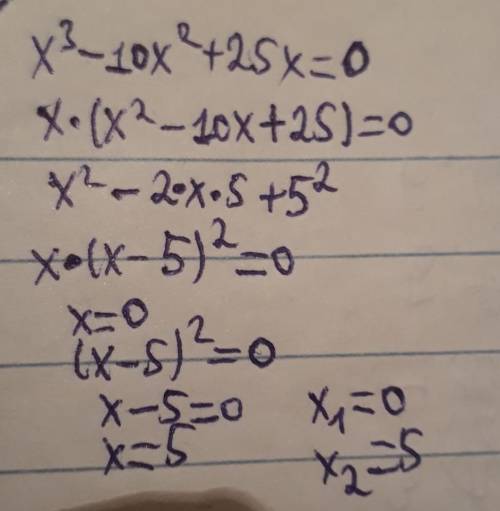 x³-10x²+25x=0
x·(x²-10x+25)=0
x²-2·x·5+5²
x·(x-5)²=0
x=0
(x-5)²=0
x-5=0 x₁=0
x=5 x₂=5